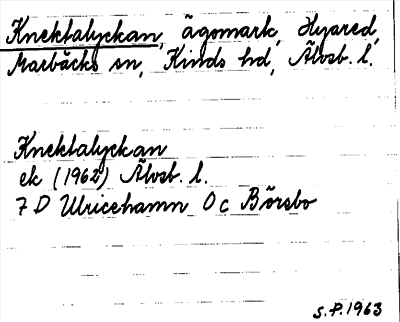 Knektalyckan, ägomark, Hyared,
Marbäcks sn, Kinds hd, Älvsb. l.
Knektalyckan
ek (1962) Älvsb. l.
7 D Ulricehamn 0 c Börsbo
S.P. 1963